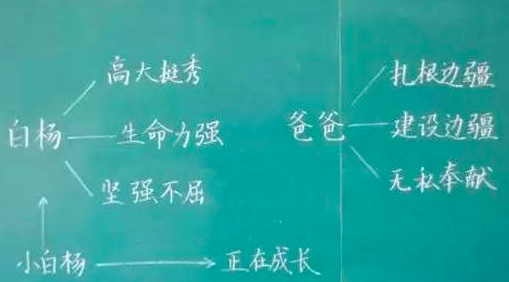 高大挺秀
白杨
生命力强
坚强不屈
小白杨
正在成长
爸爸
扎根边疆
建设边疆
无私奉献